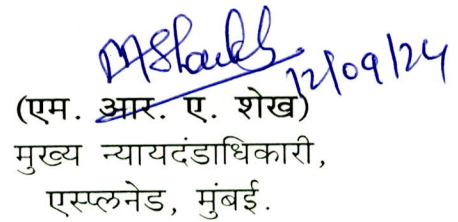 MShaikh
12/09/24
(एम. आर. ए. शेख)
मुख्य न्यायदंडाधिकारी,
एस्प्लनेड, मुंबई.